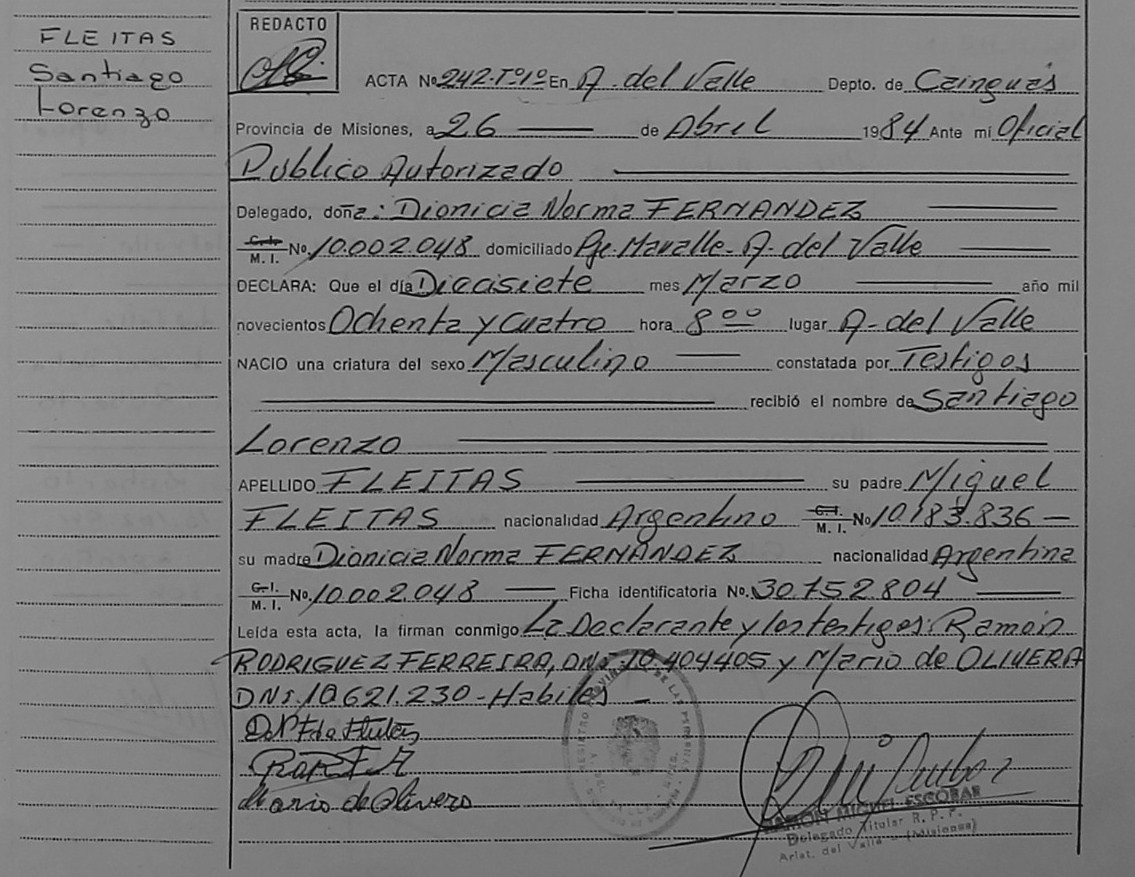 FLEITAS
Santiago
Lorenzo
REDACTO
ACTA No 242-Tº1º En A. del Valle Depto. de Cainguás
Provincia de Misiones, a 26 de Abril 1984 Ante mi Oficial
Público Autorizado
Delegado, doña: Dionicia Norma FERNANDEZ
C.I. M. I. No. 10.002.048 domiciliado Pje. Mavalle - A. del Valle
DECLARA: Que el día Diecisiete mes Marzo año mil
novecientos Ochenta y Cuatro hora 8 00 lugar A. del Valle
NACIO una criatura del sexo Masculino constatada por Testigos
recibió el nombre de Santiago
Lorenzo
APELLIDO FLEITAS su padre Miguel
FLEITAS nacionalidad Argentino C.I. M. I. No 10.183.836
su madre Dionicia Norma FERNANDEZ nacionalidad Argentina
C.I. M. I. No. 10.002.048 Ficha identificatoria No. 30.752.804
Leída esta acta, la firman conmigo La Declarante y los testigos: Ramón
RODRIGUEZ FERREIRA, DNI. 10.404405 y Mario de OLIVERA
DNI. 10.621.230 - Hábiles
Mario de Olivero
RAMON MIGUEL ESCOBAR
Delegado Titular R. P. P.
Arist. del Valle (Misiones)